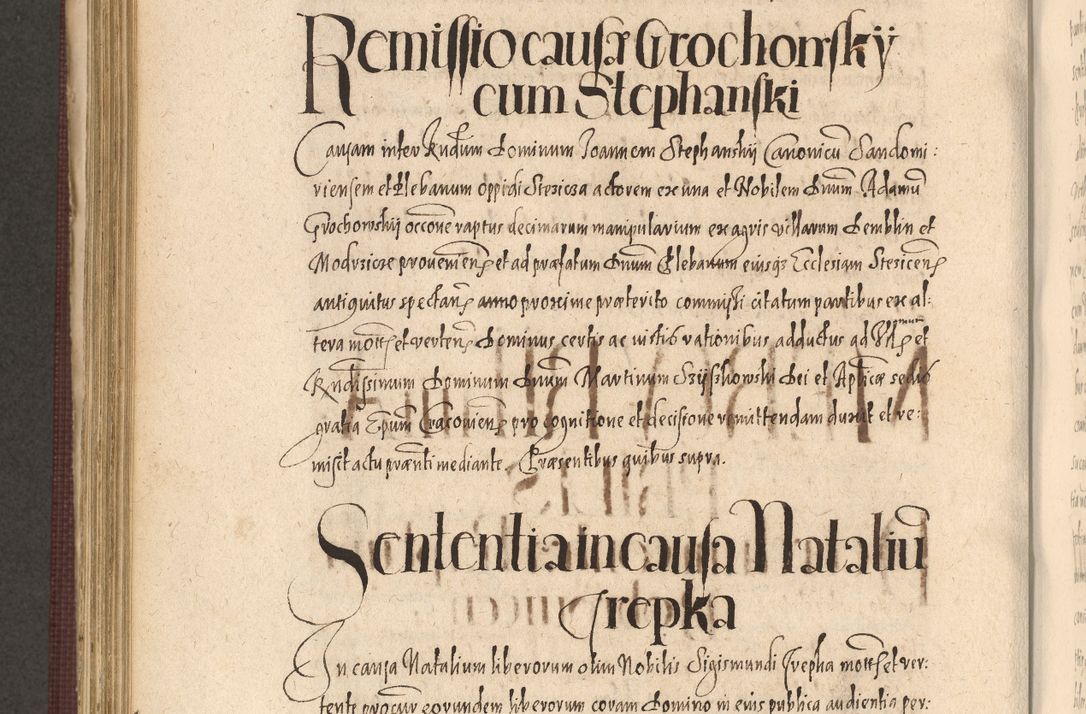 Remissio causæ Grochowskÿ
cum Stephanski
Causam inter Rndum Dominum Joannem Stephanskij Canonicũ Sandomi:
riensem et Plebanum oppidi Stezicza actorem ex una et Nobilem Dnum Adamũ
Grochowskij occone raptus decimarum manipularium ex agris villarum Demblin et
Modrzicze provenien et ad præfatum Dnum Plebanum eiusq3 Ecclesiam Stezicen
antiquitus spectan anno proxime præterito commissi citatum partibus ex al:
tera mott et verten Dominus certis ac iustis rationibus adductus ad Illmum et
Rndissimum Dominum Dnum Martinum Szÿszkowski Dei et Aplicæ sedis
gratia Epum Cracovien pro cognitione et decisione remittendam duxit et re:
misit actu prænti mediante. Præsentibus quibus supra.
Sententia in causa Nataliũ
Trepka
In causa Natalium liberorum olim Nobilis Sigismundi Trepka mott et ver:
tente procur eorundem liberorum coram Domino in eius publica audientia per: